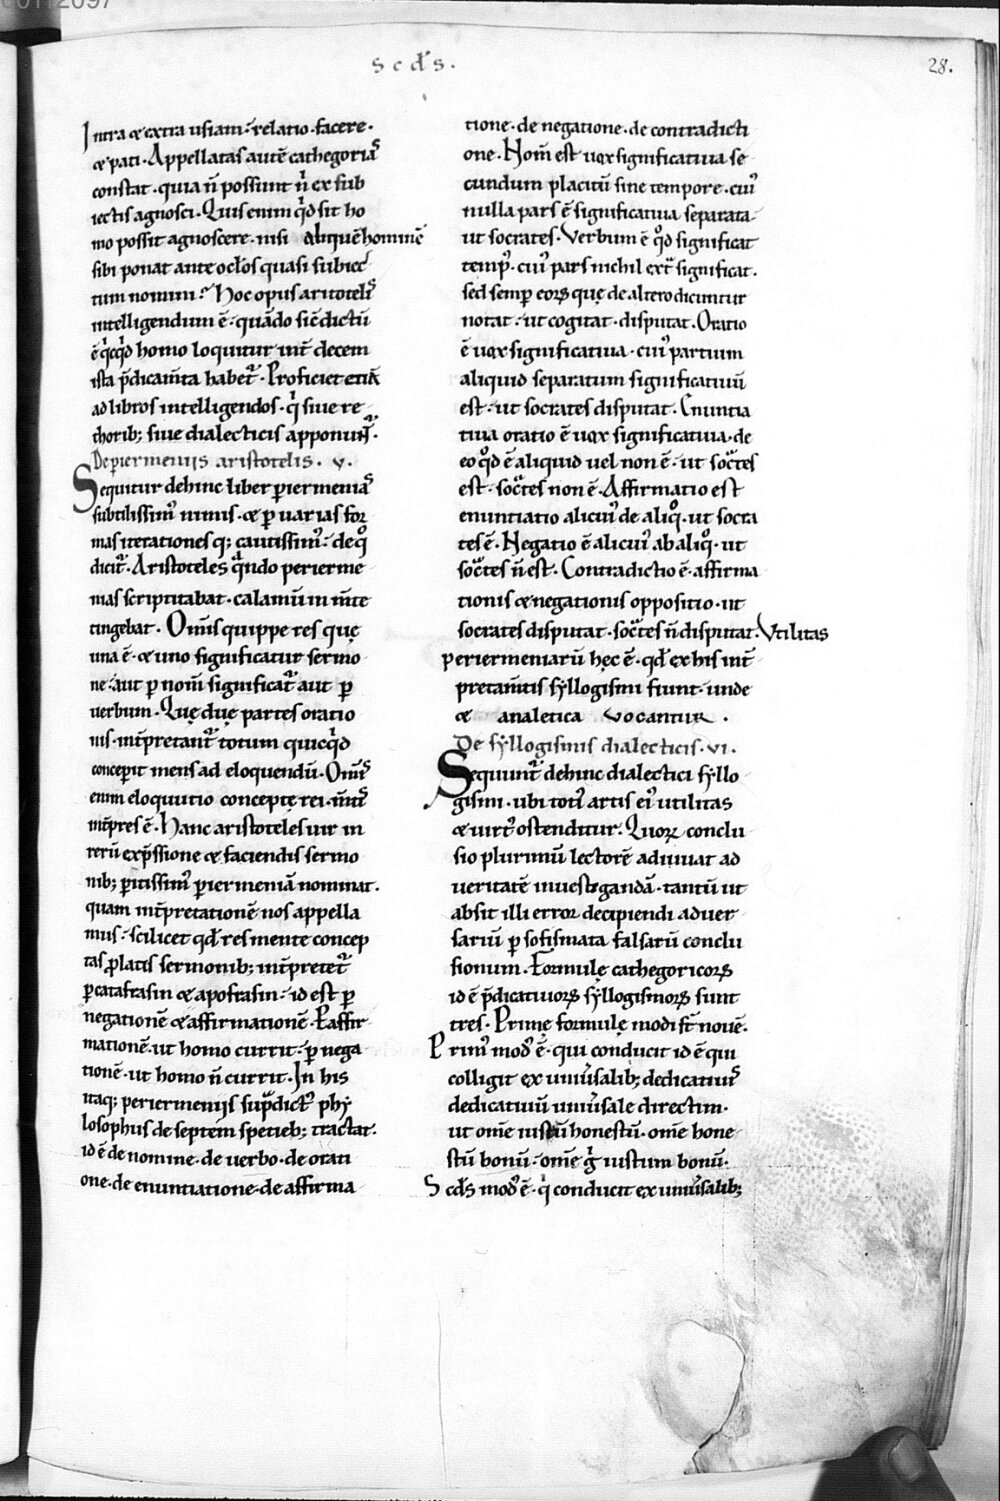 scds.
28.
Intra & extra usiam: relatio. facere.
& pati. Appellatas autē cathegorias
constat. quia n̄ possunt n̄ ex sub
iectis agnosci. Quis enim qd sit ho
mo possit agnoscere. nisi aliquē hominē
sibi ponat ante oclos quasi subiec
tum nomini? Hoc opus aristotelis
intelligendum ē. quādo sic̄ dictū
ē qcqd homo loquitur int̄ decem
ista p̄dicam̄ta habet̄. Proficiet etiā
ad libros intelligendos. q siue re
thorib; siue dialecticis apponunt̄.
De periermeniis aristotelis. v.
Sequitur dehinc liber periermenias
subtilissim' nimis. & p uarias for
mas iterationesq; cautissim'. de q
dicit̄. Aristoteles qndo perierme
nias scriptitabat. calamū in m̄te
tingebat. Om̄is quippe res quę
una ē. & uno significatur sermo
ne: aut p nom̄ significat̄ aut p
uerbum. Quę duę partes oratio
nis. int̄pretant̄ totum quicqd
concepit mens ad eloquendū. Om̄is
enim eloquutio conceptę rei. m̄tis
int̄pres ē. Hanc aristoteles uir in
rerū exp̄ssione & faciendis sermo
nib; pitissim' periermeniā nominat.
quam int̄pretationē nos appella
mus: scilicet qd res mente concep
tas platis sermonib; int̄pretet̄
p catafrasin & apofrasin: id est p
negationē & affirmationē. P affir
mationē. ut homo currit. p nega
tionē. ut homo n̄ currit. In his
itaq; periermeniis supdict' phy
losophus de septem spetieb; tractat.
id ē de nomine. de uerbo. de orati
one. de enuntiatione. de affirma
tione. de negatione. de contradicti
one. Nom̄ est uox significatiua se
cundum placitū sine tempore. cui'
nulla pars ē significatiua separata.
ut socrates. Verbum ē qd significat
temp'. cui' pars nichil ext̄ significat.
sed semp eorꝝ quę de altero dicuntur
notat. ut cogitat. disputat. Oratio
ē uox significatiua. cui' partium
aliquid separatum significatiuū
est. ut socrates disputat. Enuntia
tiua oratio ē uox significatiua. de
eo qd ē aliquid uel non ē. ut soctes
est. soctes non ē. Affirmatio est
enuntiatio alicui' de aliq. ut socra
tes ē. Negatio ē alicui' ab aliq. ut
soctes n̄ est. Contradictio ē. affirma
tionis & negationis oppositio. ut
socrates disputat. soctes n̄ disputat. Vtilitas
periermeniarū hęc ē. qd ex his int̄
pretam̄tis syllogismi fiunt. unde
& analetica vocantur.
De syllogismis dialecticis. vi.
Sequunt̄ dehinc dialectici syllo
gismi. ubi toti' artis ei' utilitas
& uirt' ostenditur. Quorꝝ conclu
sio plurimū lectorē adiuuat ad
ueritatē inuestigandā. tantū ut
absit illi error decipiendi aduer
sariū p sofismata falsarū conclu
sionum. Formulę cathegoricorꝝ
id ē p̄dicatiuorꝝ syllogismorꝝ sunt
tres. Primę formulę modi st̄ nouē.
Prim' mod' ē. qui conducit id ē qui
colligit ex uniu̅salib; dedicatiuis
dedicatiuū uniu̅sale directim.
ut om̄e iustū honestū. om̄e hone
stū bonū. om̄e g iustum bonū.
Scds mod' ē. q conducit ex uniu̅salib;